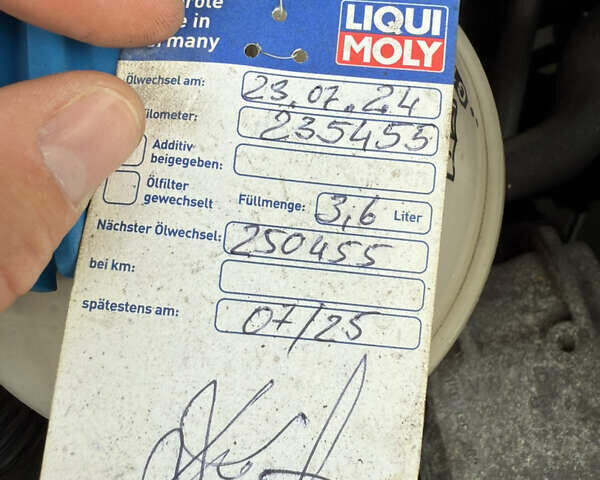 in
Germany
LIQUI
MOLY
Ölwechsel am: 23.07.24
Kilometer: 235455
Additiv
beigegeben:
Ölfilter
gewechselt
Füllmenge: 3,6 Liter
Nächster Ölwechsel: 250455
bei km:
spätestens am: 07/25